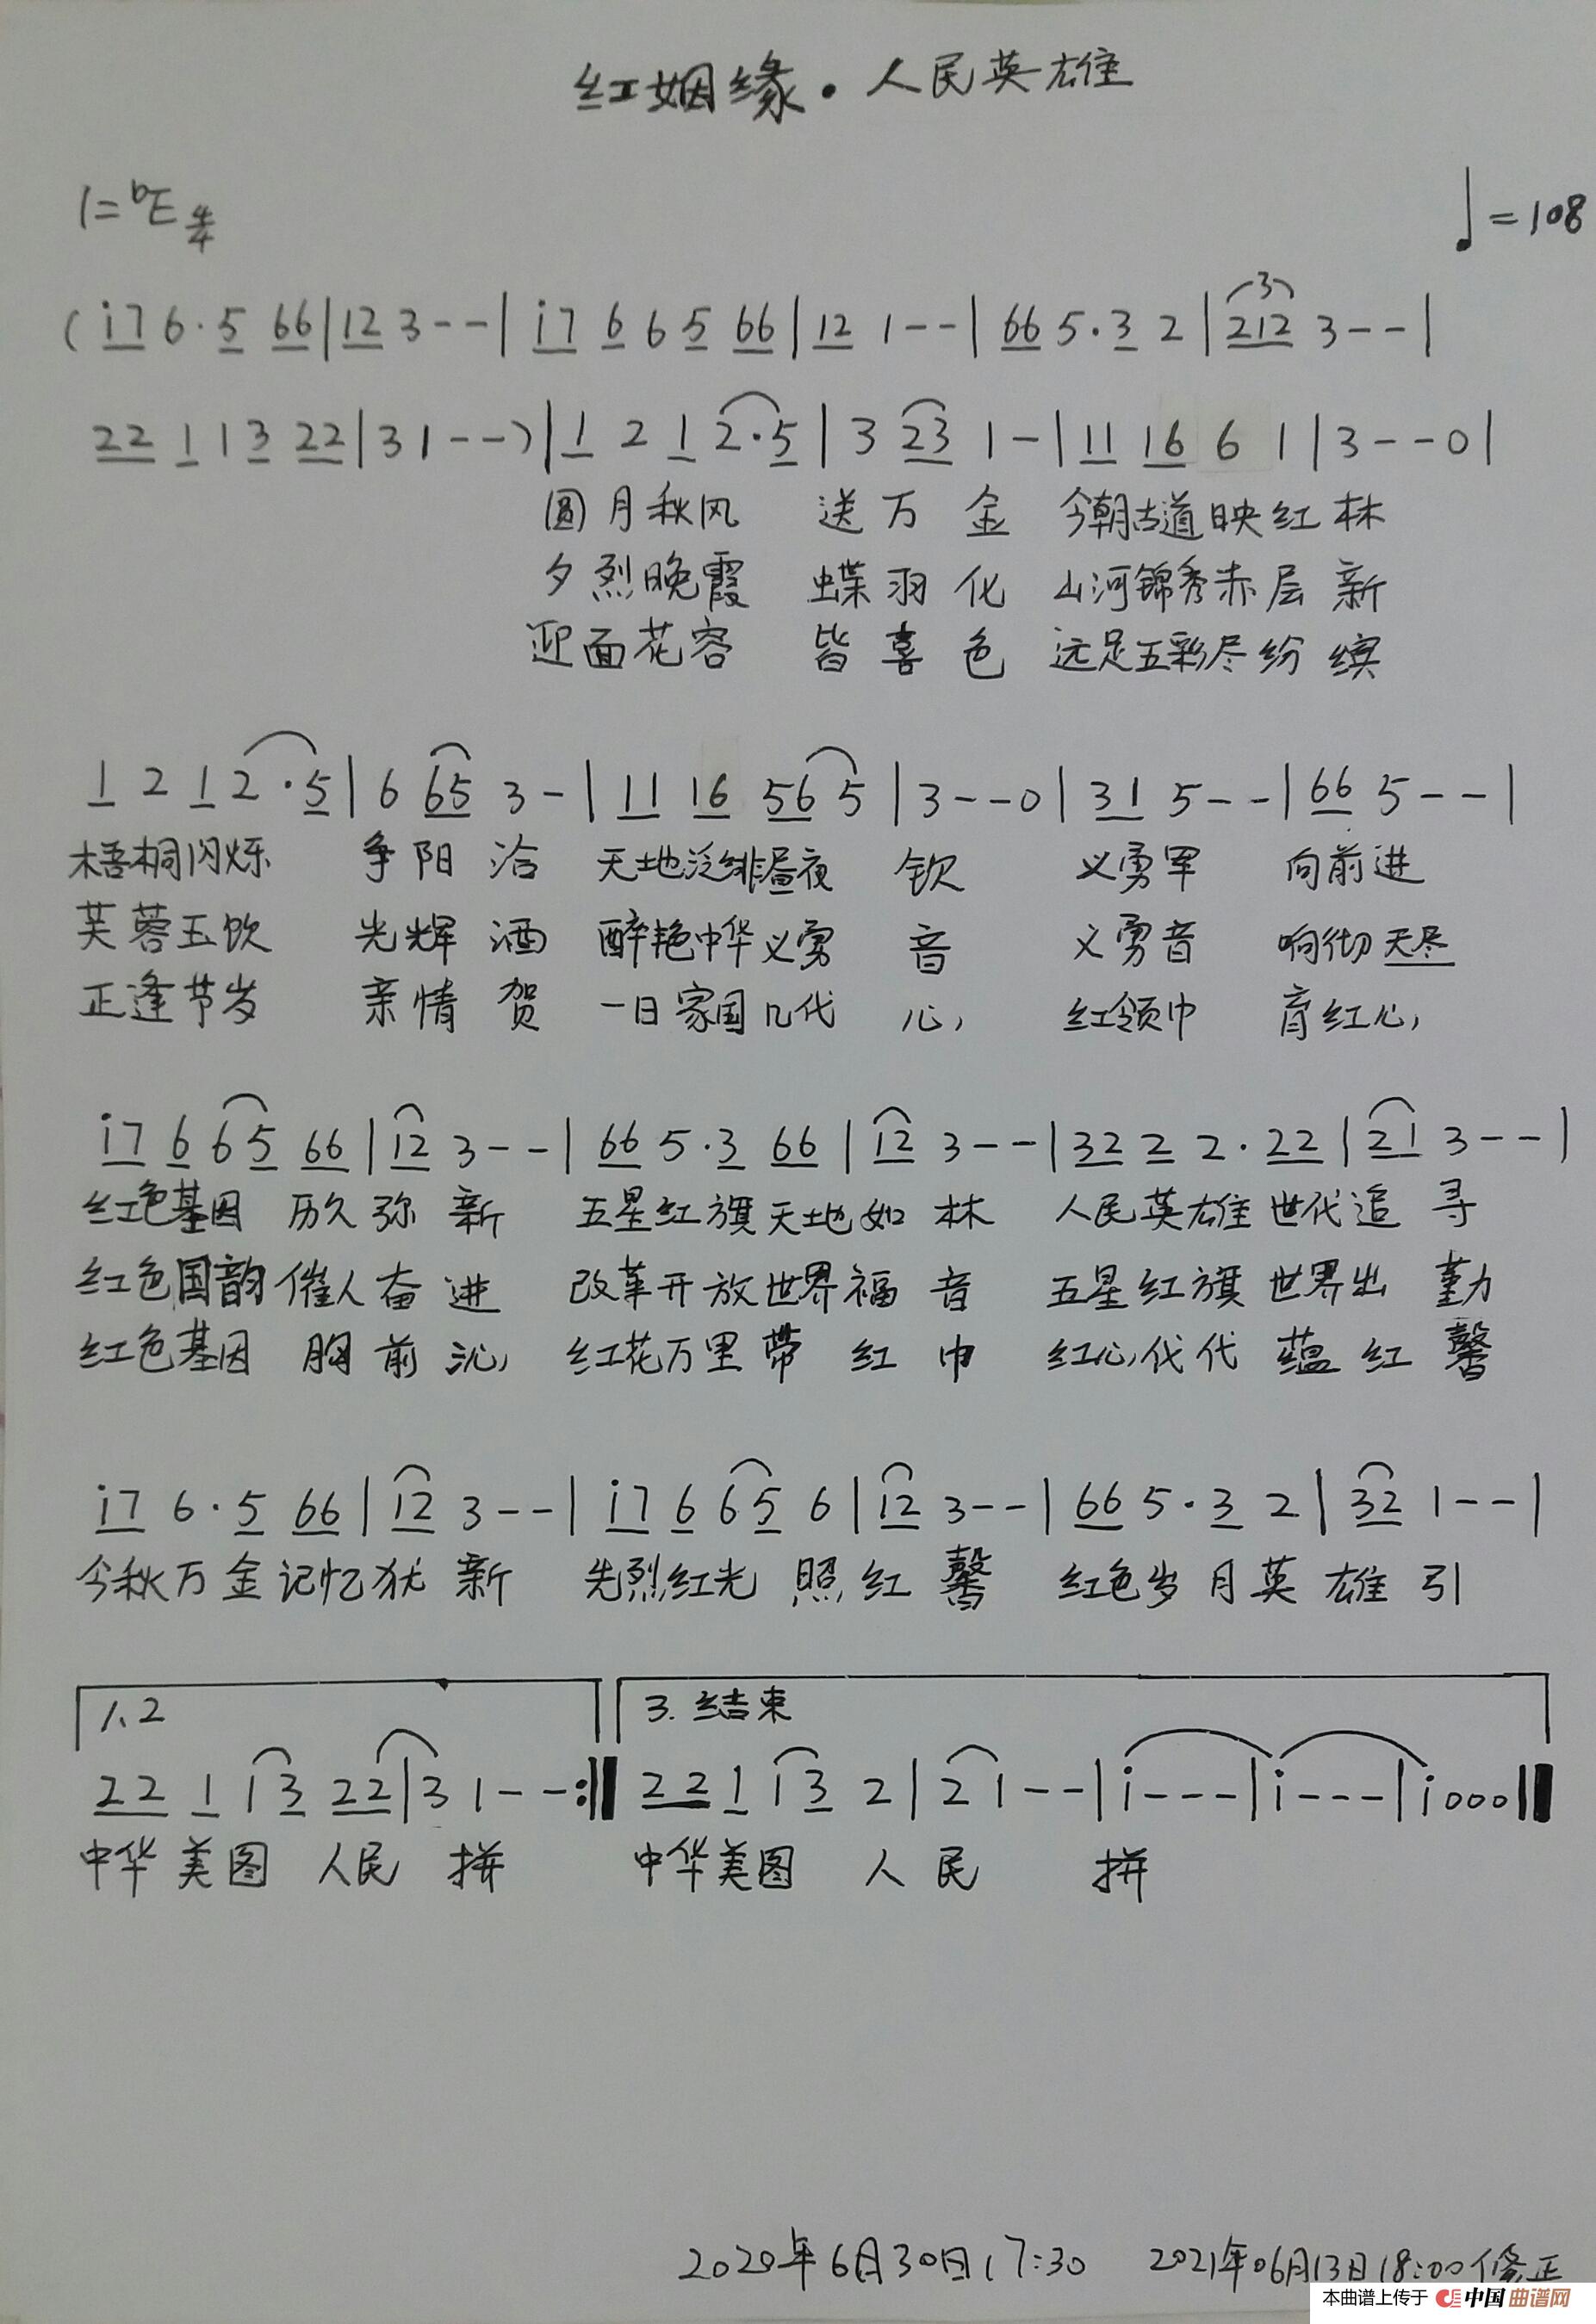 红姻缘·人民英雄
1=bE 4/4 ♩=108
(i7 6·5 66|12 3--|i7 6 6 5 66|12 1--|66 5·3 2|212 3--|
3
22 1 1 3 22|31--)|1 2 1 2·5|3 23 1-|11 16 6 1|3--0|
圆月秋风 送万金 今朝古道映红林
夕烈晚霞 蝶羽化 山河锦秀赤层新
迎面花容 皆喜色 远足五彩尽纷缤
1 2 1 2·5|6 65 3-|11 16 56 5|3--0|31 5--|66 5--|
梧桐闪烁 争阳洽 天地泛绯昼夜钦 义勇军 向前进
芙蓉玉饮 光辉洒 醉艳中华义勇音 义勇音 响彻天尽
正逢节岁 亲情贺 一日家国几代心 红领巾 育红心
i7 6 65 66|12 3--|66 5·3 66|12 3--|32 2 2·22|21 3--|
红色基因 历久弥新 五星红旗天地如林 人民英雄世代追寻
红色国韵催人奋进 改革开放世界福音 五星红旗世界出勤
红色基因 胸前沁 红花万里带红巾 红心代代蕴红馨
i7 6·5 66|12 3--|i7 6 65 6|12 3--|66 5·3 2|32 1--|
今秋万金记忆犹新 先烈红光照红馨 红色岁月英雄引
1、2 3.结束
22 1 13 22|3 1--:‖22 1 13 2|2 1--|i---|i---|i000‖
中华美图 人民拼 中华美图 人民 拼
2020年6月30日17:30 2021年06月13日18:00修正
本曲谱上传于 中国曲谱网